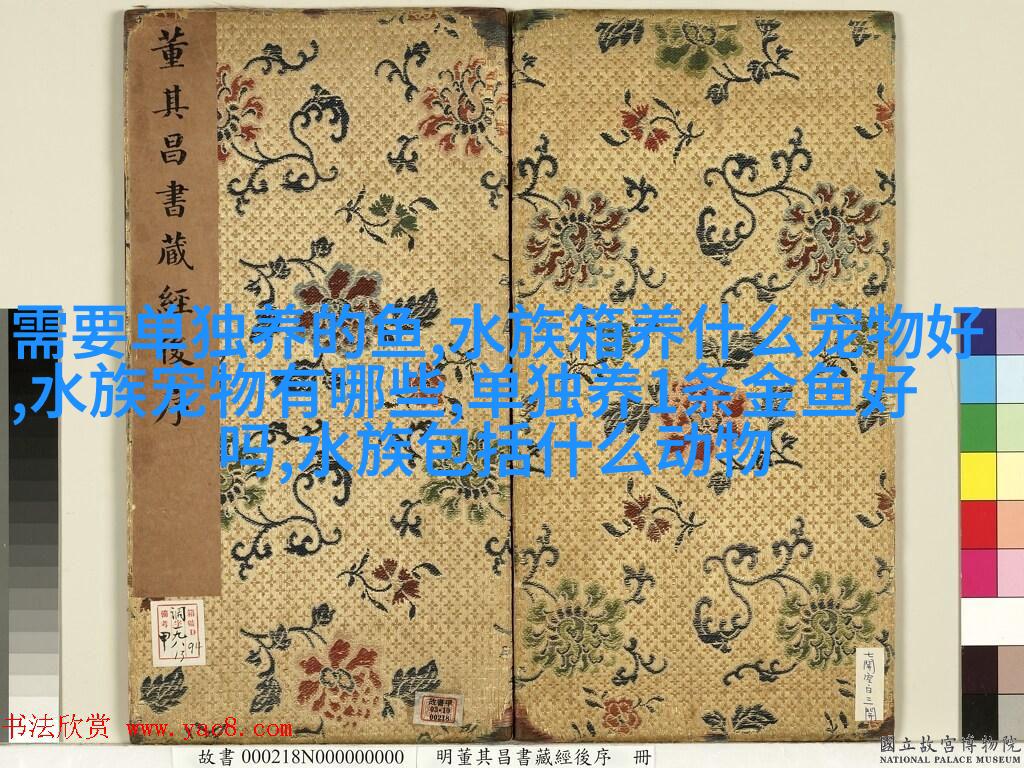 董其昌書藏經後序
需要单独养的鱼,水族箱养什么宠物好
,水族宠物有哪些,单独养1条金鱼好
吗,水族包括什么动物
故書甲
03·10
00218
七開空白三開
书法欣赏 www.yac8.com
國立故宮博物院
NATIONAL PALACE MUSEUM
故書 000218N000000000 明董其昌書藏經後序 冊